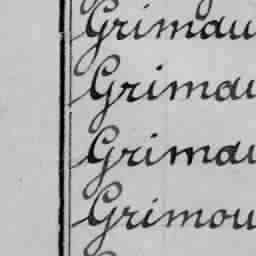 Grimau
Grimau
Grimau
Grimou